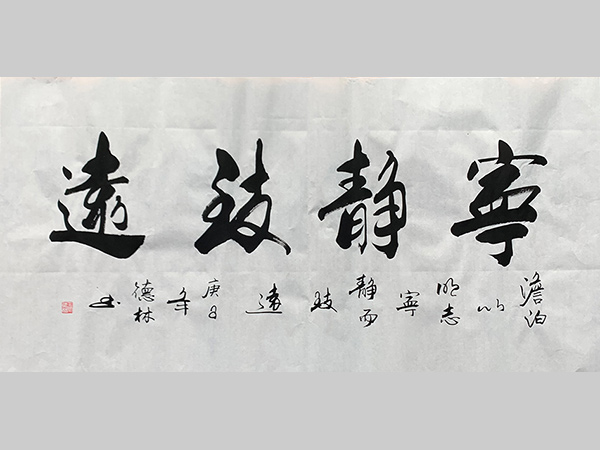 寧静致遠
澹泊以明志寧静而致遠庚子年德林书